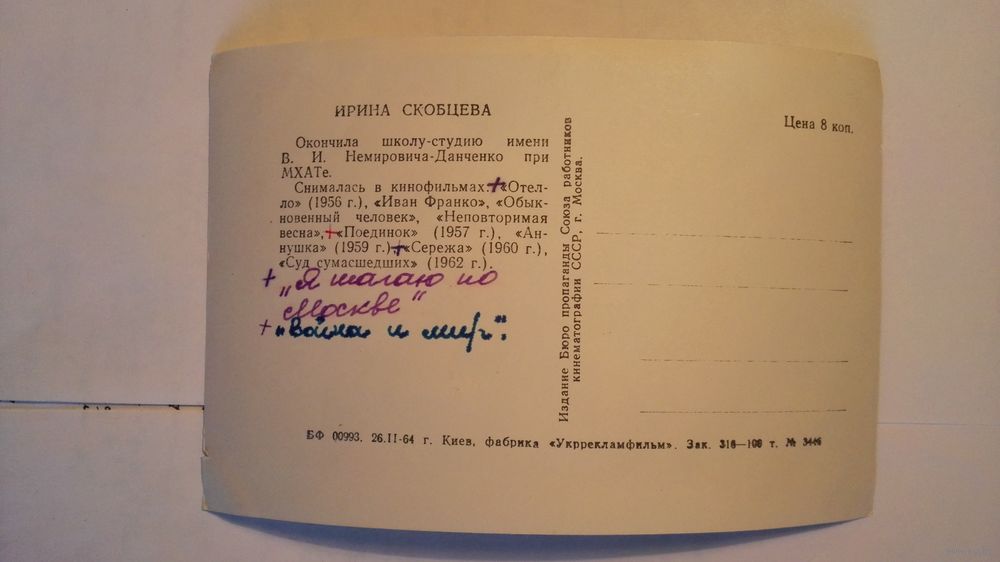 ИРИНА СКОБЦЕВА
Окончила школу-студию имени
В. И. Немировича-Данченко при
МХАТе.
Снималась в кинофильмах: +«Отел-
ло» (1956 г.), «Иван Франко», «Обык-
новенный человек», «Неповторимая
весна», +«Поединок» (1957 г.), «Ан-
нушка» (1959 г.), +«Сережа» (1960 г.),
«Суд сумасшедших» (1962 г.).
+ „Я шагаю по
Москве"
+ „Война и мир".
Издание Бюро пропаганды Союза работников
кинематографии СССР, г. Москва.
Цена 8 коп.
БФ 00993. 26.II-64 г. Киев, фабрика «Укррекламфильм». Зак. 316—100 т. №